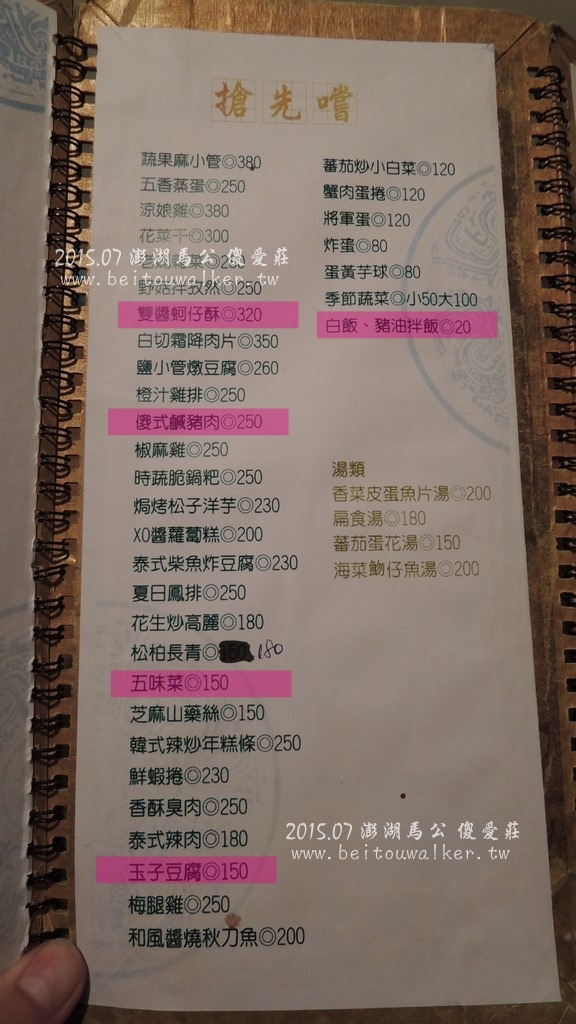 搶先嚐
蔬果麻小管◎380
五香蒸蛋◎250
涼娘雞◎380
花菜干◎300
2015.07 澎湖馬公 傻愛莊
www.beitouwalker.tw
野菇拌孜然◎250
雙醬蚵仔酥◎320
白切霜降肉片◎350
鹽小管燉豆腐◎260
橙汁雞排◎250
傻式鹹豬肉◎250
椒麻雞◎250
時蔬脆鍋粑◎250
焗烤松子洋芋◎230
XO醬蘿蔔糕◎200
泰式柴魚炸豆腐◎230
夏日鳳排◎250
花生炒高麗◎180
松柏長青◎ 180
五味菜◎150
芝麻山藥絲◎150
韓式辣炒年糕條◎250
鮮蝦捲◎230
香酥臭肉◎250
泰式辣肉◎180
玉子豆腐◎150
梅腿雞◎250
和風醬燒秋刀魚◎200
蕃茄炒小白菜◎120
蟹肉蛋捲◎120
將軍蛋◎120
炸蛋◎80
蛋黃芋球◎80
季節蔬菜◎小50大100
白飯、豬油拌飯◎20
湯類
香菜皮蛋魚片湯◎200
扁食湯◎180
蕃茄蛋花湯◎150
海菜魩仔魚湯◎200
2015.07 澎湖馬公 傻愛莊
www.beitouwalker.tw